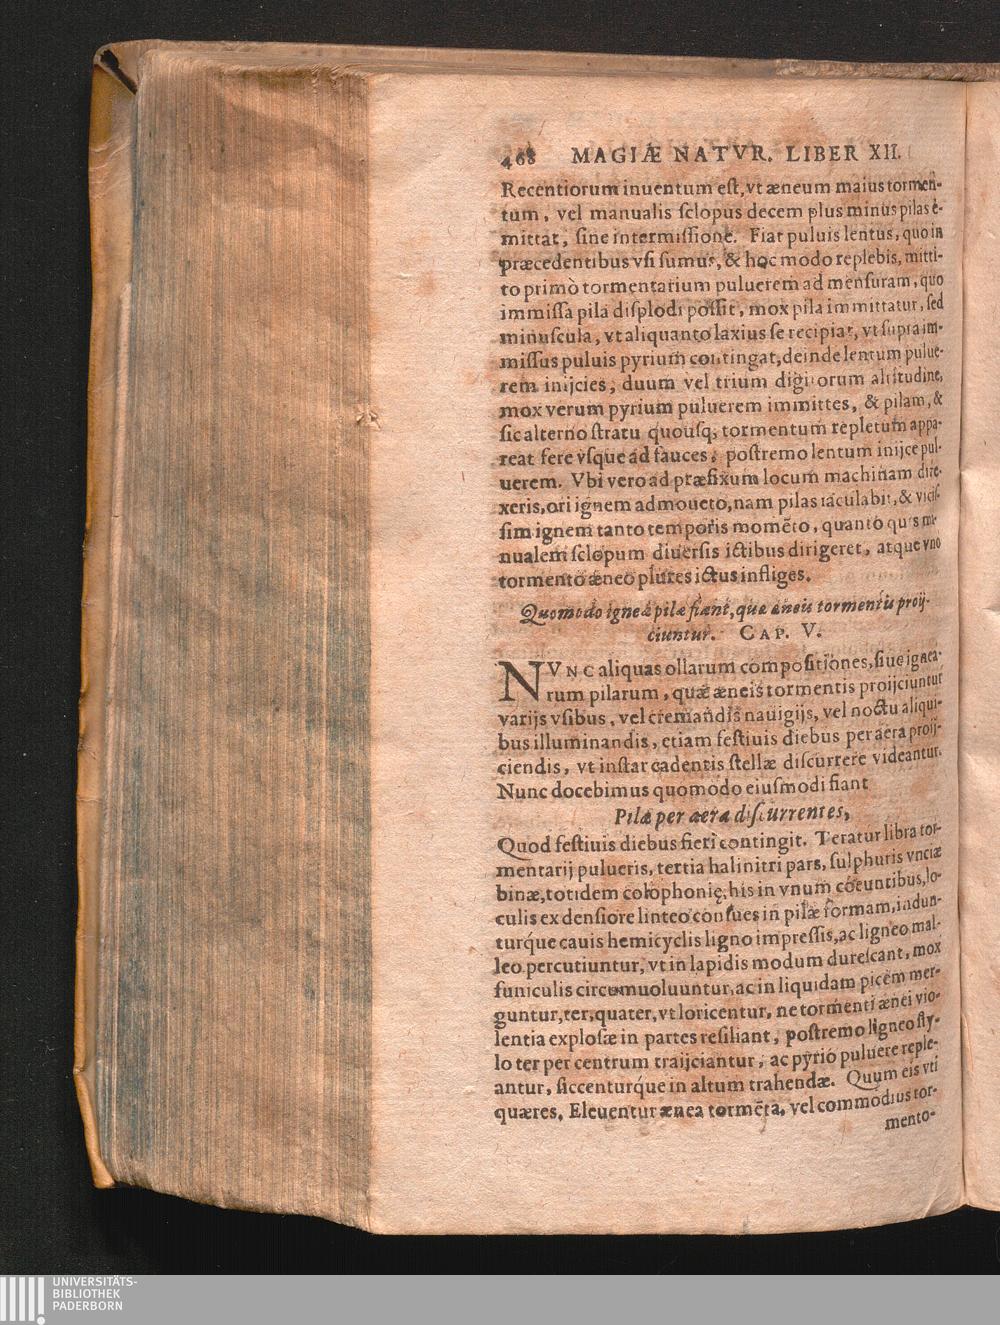 468 MAGIÆ NATVR. LIBER XII.
Recentiorum inuentum eſt, vt æneum maius tormen-
tum, vel manualis ſclopus decem plus minus pilas è-
mittat, ſine intermiſſione. Fiat puluis lentus, quo in
præcedentibus vſi ſumus, & hoc modo replebis, mitti-
to primò tormentarium puluerem ad menſuram, quo
immiſſa pila diſplodi poſſit, mox pila immittatur, ſed
minuſcula, vt aliquanto laxius ſe recipiat, vt ſupra im-
miſſus puluis pyrium contingat, deinde lentum pulue-
rem inijcies, duum vel trium digitorum altitudine,
mox verum pyrium puluerem immittes, & pilam, &
ſic alterno ſtratu quouſq; tormentum repletum appa-
reat fere vſque ad fauces, poſtremo lentum inijce pul-
uerem. Vbi vero ad præfixum locum machinam dire-
xeris, ori ignem admoueto, nam pilas iaculabit, & viciſ-
ſim ignem tanto temporis momēto, quanto quis ma-
nualem ſclopum diuerſis ictibus dirigeret, atque vno
tormento æneo plures ictus infliges.
Quomodo igneæ pilæ fiant, quæ æneis tormentis proij-
ciuntur. CAP. V.
NVNC aliquas ollarum compoſitiones, ſiue ignea-
rum pilarum, quæ æneis tormentis proijciuntur
varijs vſibus, vel cremandis nauigijs, vel noctu aliqui-
bus illuminandis, etiam feſtiuis diebus per aera proij-
ciendis, vt inſtar cadentis ſtellæ diſcurrere videantur.
Nunc docebimus quomodo eiuſmodi fiant
Pilæ per aera diſcurrentes,
Quod feſtiuis diebus fieri contingit. Teratur libra tor-
mentarij pulueris, tertia halinitri pars, ſulphuris vnciæ
binæ, totidem colophonię, his in vnum coeuntibus, lo-
culis ex denſiore linteo conſues in pilæ formam, indun-
turq́ue cauis hemicyclis ligno impreſſis, ac ligneo mal-
leo percutiuntur, vt in lapidis modum dureſcant, mox
funiculis circumuoluuntur, ac in liquidam picem mer-
guntur, ter, quater, vt loricentur, ne tormenti ænei vio-
lentia exploſæ in partes reſiliant, poſtremo ligneo ſty-
lo ter per centrum traijciantur, ac pyrio puluere reple-
antur, ſiccenturq́ue in altum trahendæ. Quum eis vti
quæres, Eleuentur ænea tormēta, vel commodius tor-
mento-
UNIVERSITÄTS-
BIBLIOTHEK
PADERBORN